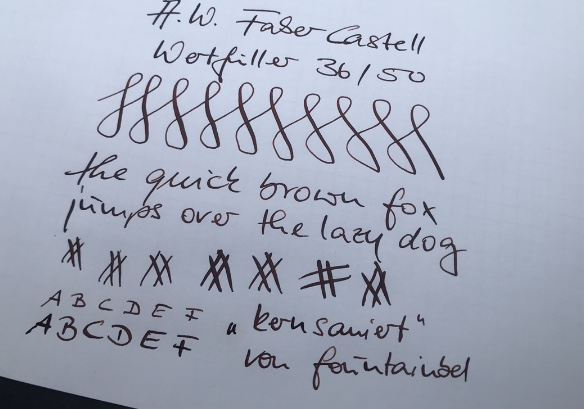 A.W. Faber Castell
Wortfüller 36/50
the quick brown fox
jumps over the lazy dog
A B C D E F
A B C D E F „kernsaniert“
von fountainbel